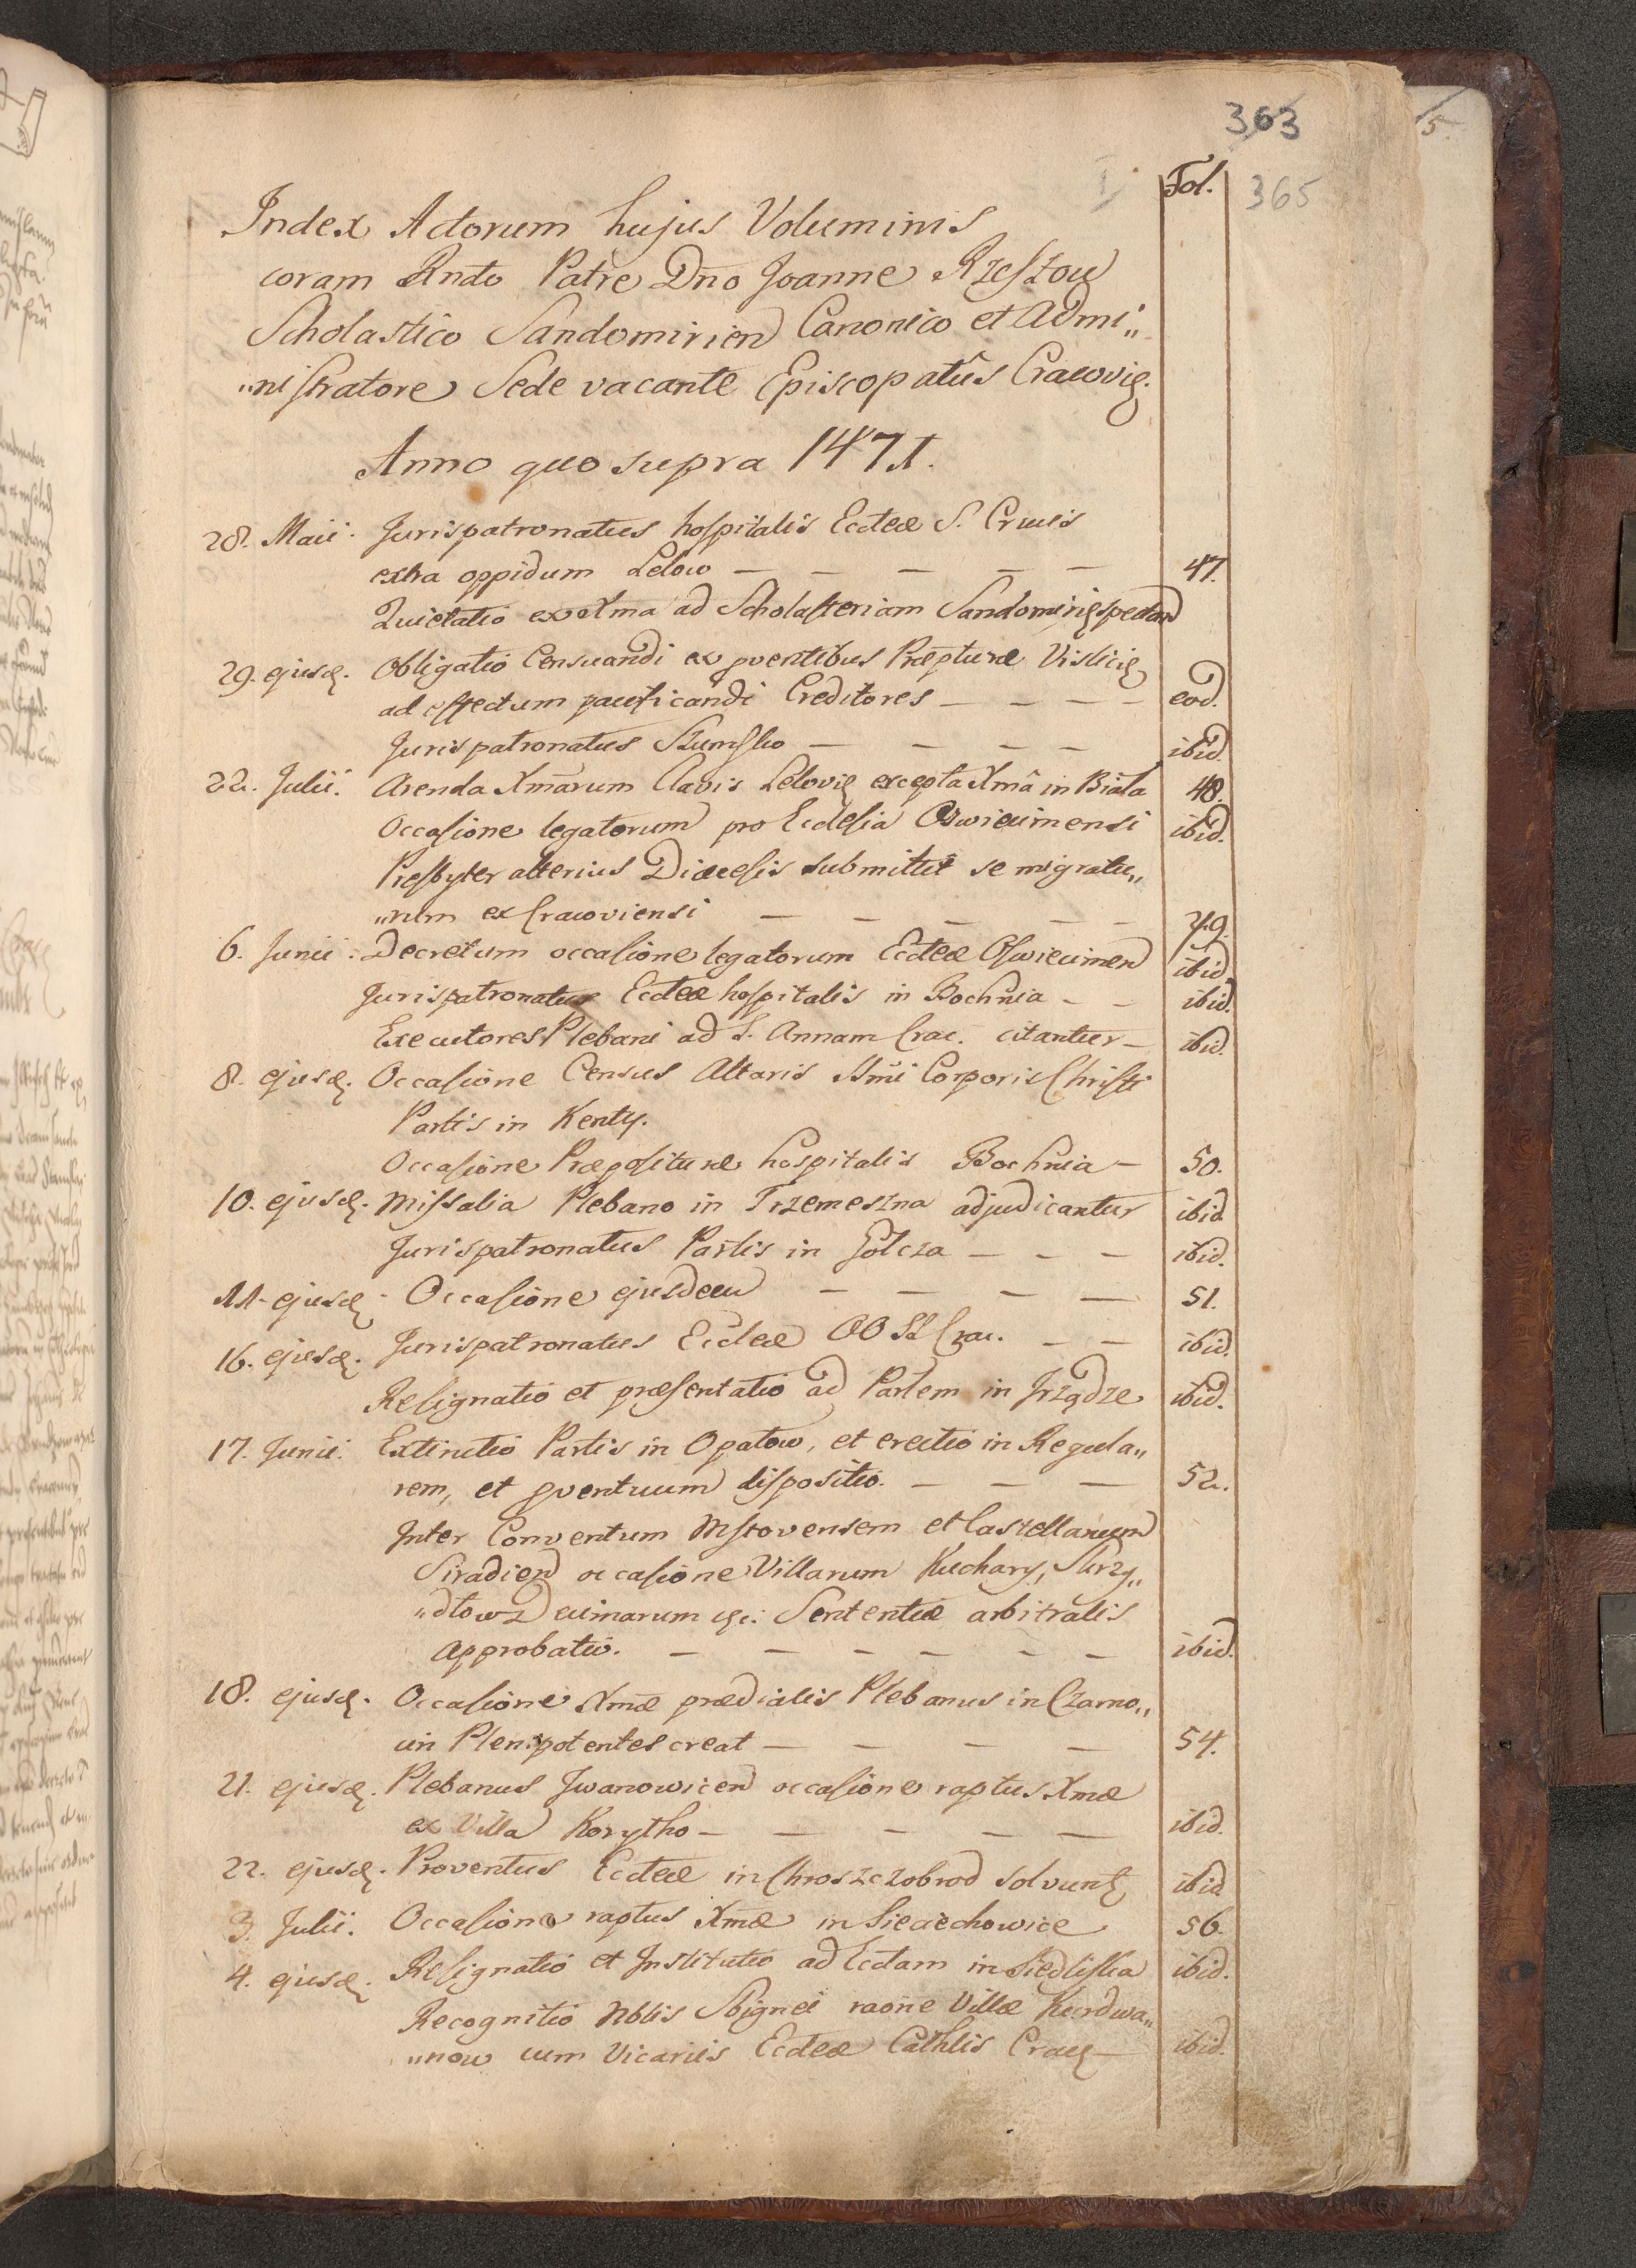 363
Fol. 365
Index Actorum hujus Voluminis
coram Rndo Patre Dno Joanne Rzeszow
Scholastico Sandomirien Canonico et Admi„
„nistratore Sede vacante Episcopatûs Cracovię.
Anno quo supra 1471.
28. Maii. Jurispatronatus hospitalis Eccleæ S. Crucis
extra oppidum Lelow — — — — — 47.
Quietatio ex Xma ad Scholasteriam Sandomirię spectan
29. ejusd. Obligatio Censuandi ex pventibus Præpturæ Vislicię
ad effectum pacificandi Creditores — — — — eod.
Jurispatronatus Szumsko — — — — ibid.
22. Julii. Arenda Xmarum Clavis Lelovię excepta Xmâ in Biała 48.
Occasione legatorum pro Ecclesia Oswiecimensi ibid.
Presbyter alterius Diæcesis submittit se migratu„
„rum ex Cracoviensi — — — — — 49.
6. Junii. Decretum occasione legatorum Eccleæ Oswiecimen ibid
Jurispatronatus Eccleæ hospitalis in Bochnia — — ibid.
Executores Plebani ad S. Annam Crac. citantur — ibid.
8. ejusd. Occasione Census Altaris SSmi Corporis Christi
Partis in Kenty.
Occasione Præposituræ hospitalis Bochnia — 50.
10. ejusd. Missalia Plebano in Trzemeszna adjudicantur ibid
Jurispatronatus Partis in Gołcza — — — ibid.
11. ejusd. Occasione ejusdem — — — — 51.
16. ejusd. Jurispatronatus Eccleæ OO SS Crac. — — ibid.
Resignatio et præsentatio ad Partem in Irządze ibid.
17. Junii. Extinctio Partis in Opatow, et erectio in Regula„
rem, et pventuum dispositio. — — — 52.
Inter Conventum Mstovensem et Castellanum
Siradien occasione Villarum Kuchary, Skrzy„
„dlow Decimarum &c: Sententiæ arbitralis
Approbatio. — — — — — — ibid.
18. ejusd. Occasione Xmæ prædialis Plebanus in Czarno„
cin Plenipotentes creat — — — — 54.
21. ejusd. Plebanus Iwanowicen occasione raptus Xmæ
ex Villa Korytho — — — — — ibid.
22. ejusd. Proventus Eccleæ in Chroszczobrod solvunt ibid
3. Julii. Occasione raptus Xmæ in Sieciechowice 56.
4. ejusd. Resignatio et Institutio ad Eccłam in Siedliska ibid.
Recognitio Nblis Sbignei raone Villæ Kurdwa„
„now cum Vicariis Eccleæ Cathlis Crac — ibid.